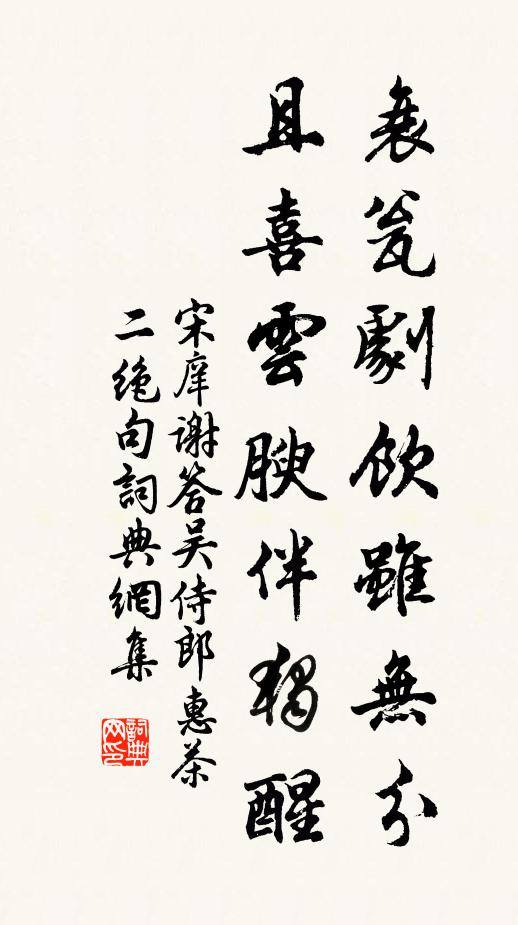 衰瓮劇飲雖無分
且喜雲腴伴獨醒
宋庠謝答吳侍郎惠茶
二絶句詞典網集
詞典网印